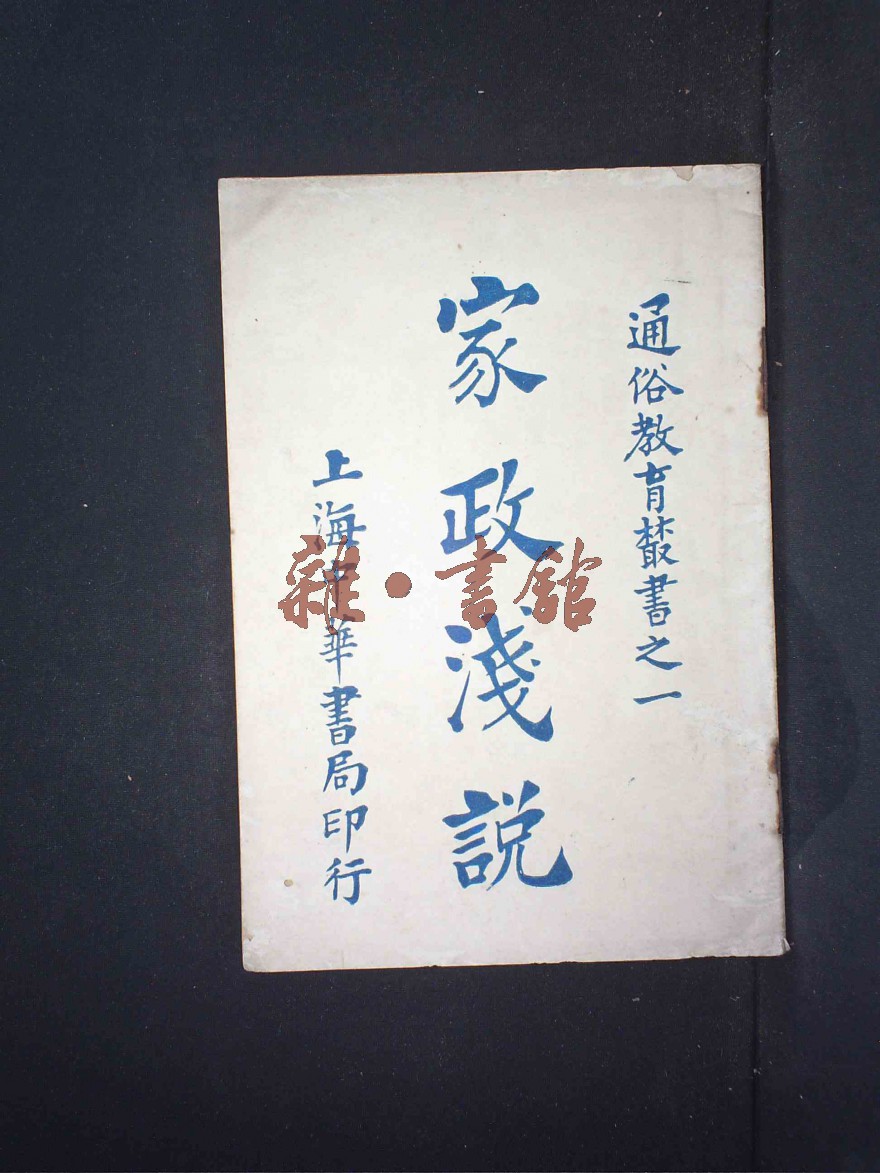 通俗教育叢書之一
家政淺説
上海中華書局印行
雜·書館